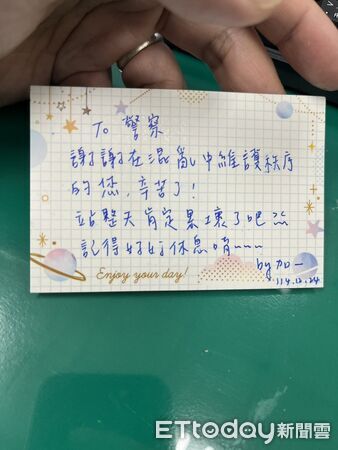 To 警察
謝謝在混亂中維護秩序
的您,辛苦了!
站整天肯定累壞了吧
記得好好休息唷~~~
by 加一
114.12.24
Enjoy your day!
ETtoday新聞雲